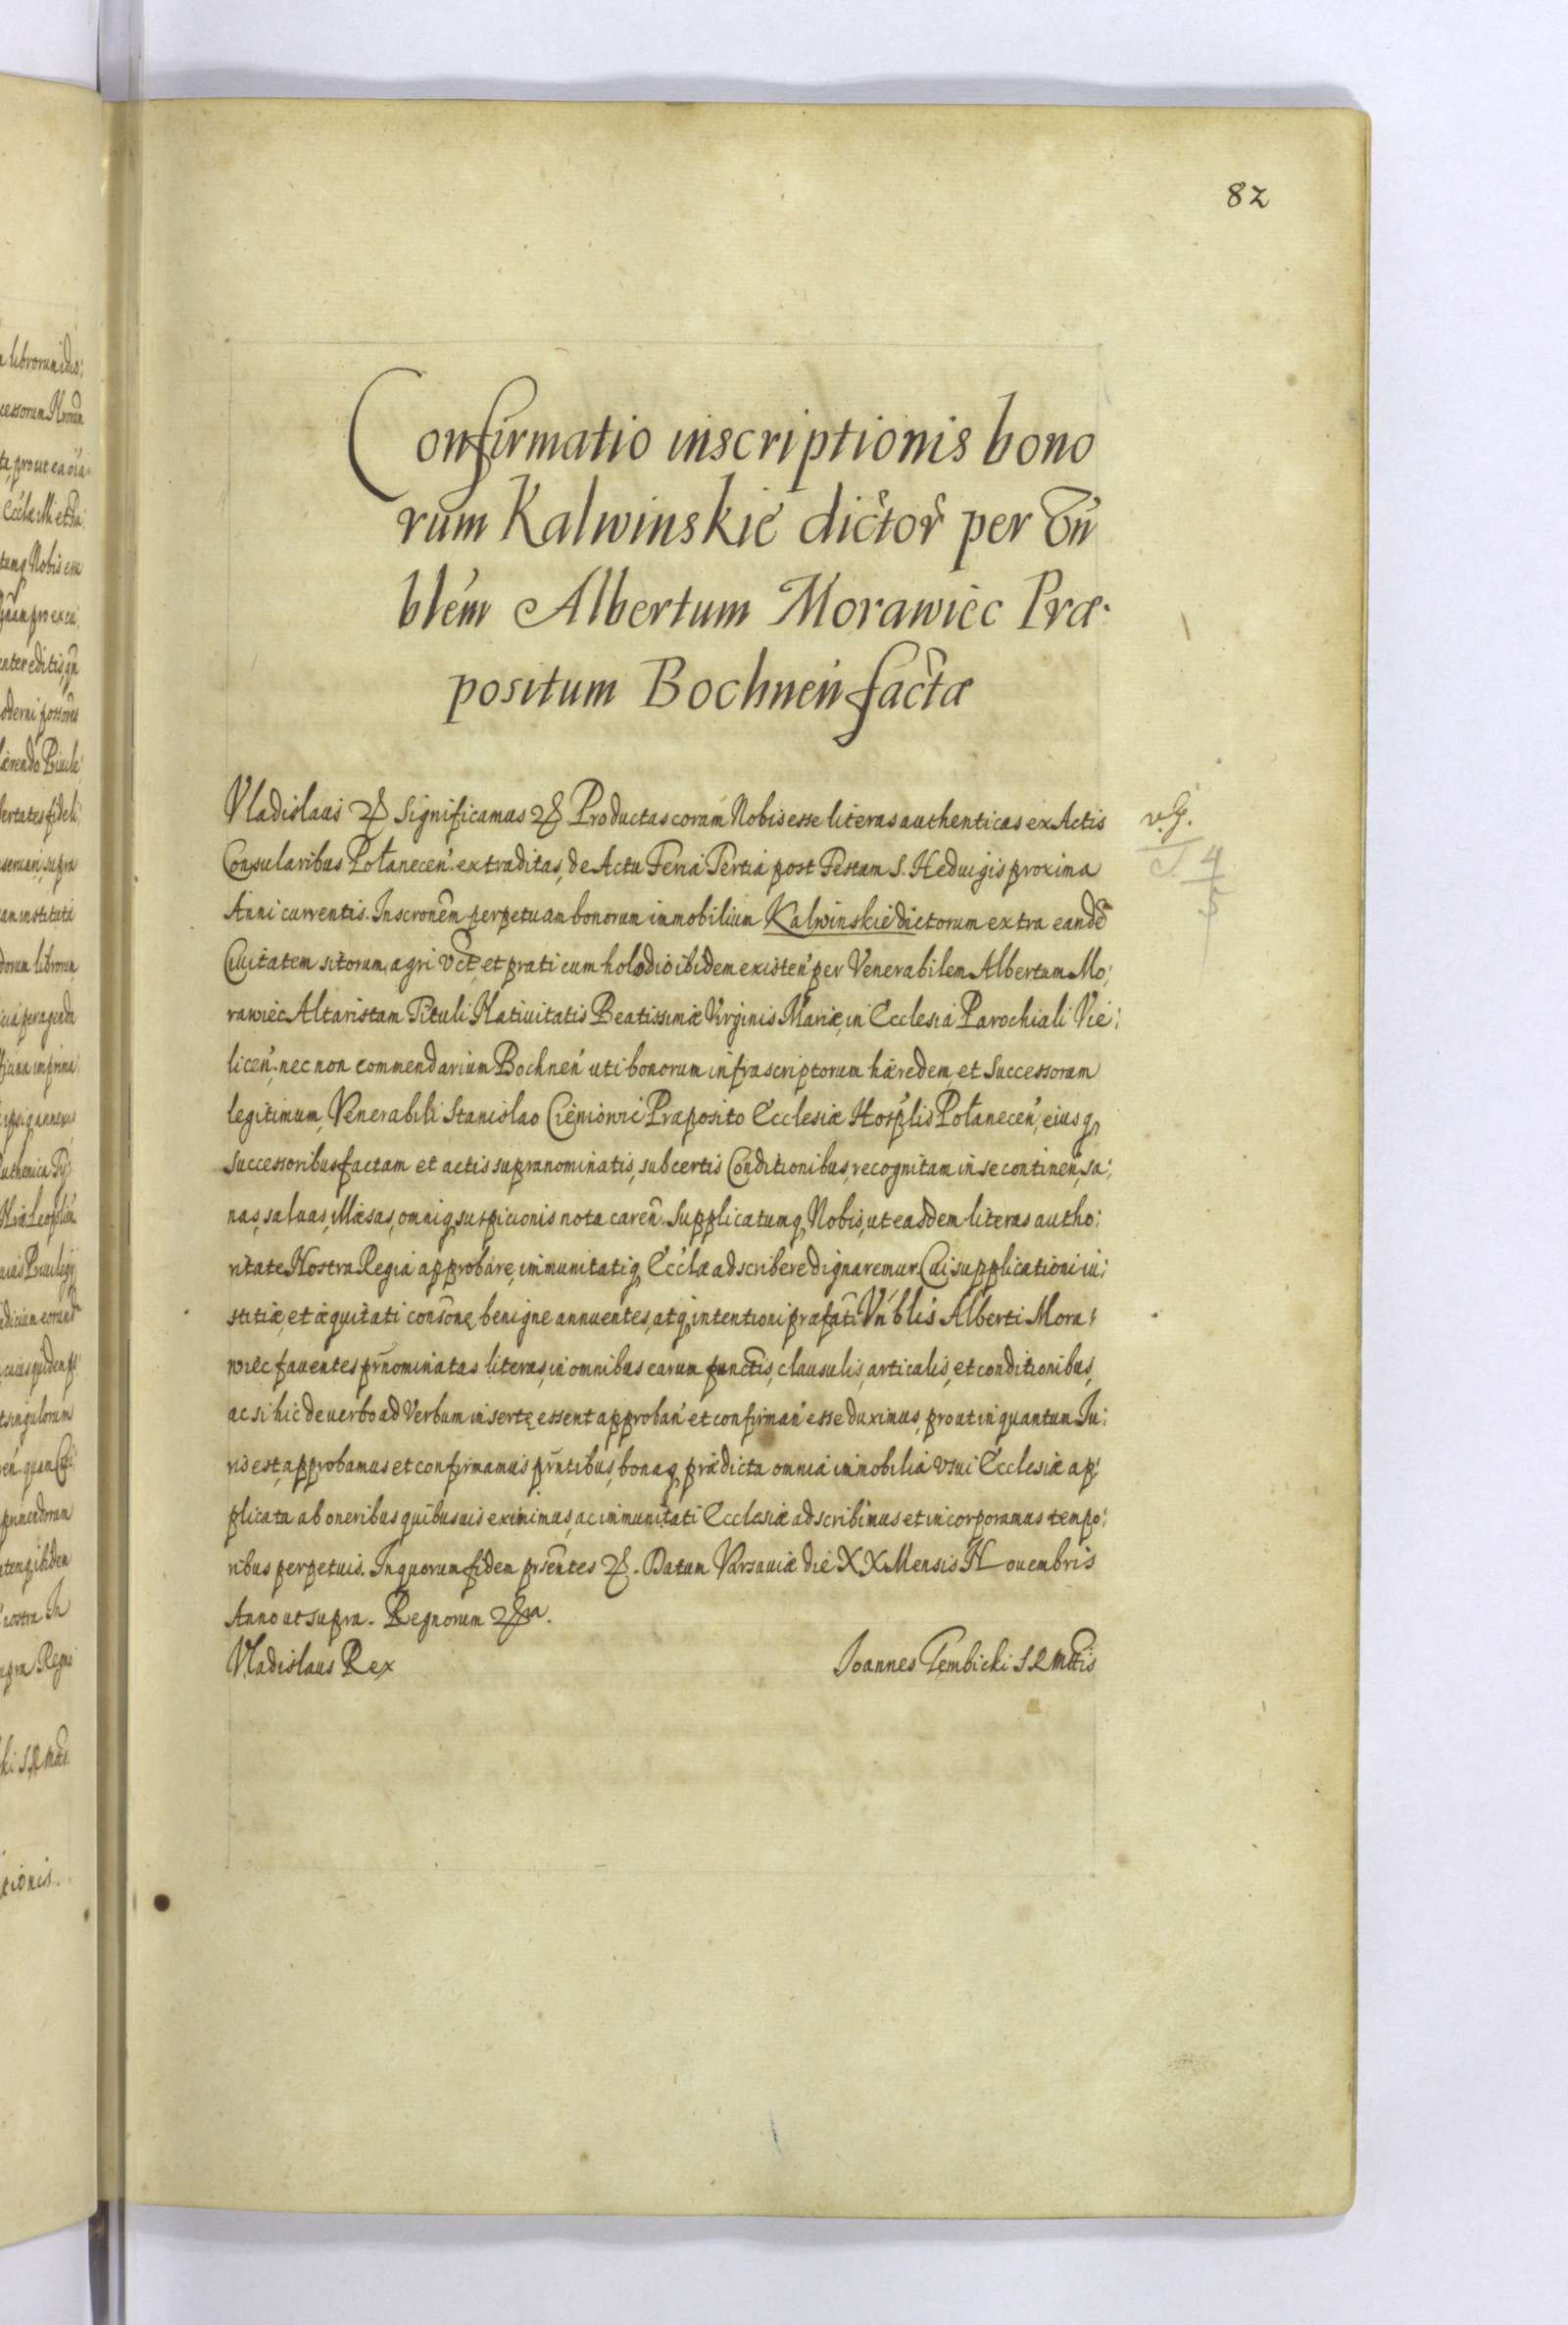 82
Confirmatio inscriptionis bono
rum Kalwinskie dictor per Vn
blem Albertum Morawiec Præ:
positum Bochnen factæ
Vladislaus &c Significamus &c Productas coram Nobis esse literas authenticas ex Actis
Consularibus Połanecen extraditas, de Actu Feria Tertia post Festum S. Heduigis proxima
Anni currentis. Inscronem perpetuam bonorum immobilium Kalwinskie dictorum extra eandē
Ciuitatem sitorum, agri vēt, et prati cum holodio ibidem existen per Venerabilem Albertum Mo:
rawiec Altaristam Tituli Natiuitatis Beatissimæ Virginis Mariæ, in Ecclesia Parochiali Vie:
licen, nec non commendarium Bochnen uti bonorum infrascriptorum hæredem, et Successorem
legitimum, Venerabili Stanislao Cieniowic Præposito Ecclesiæ Hosplis Połanecen, eiusq
Successoribus factam et actis supranominatis, sub certis Conditionibus, recognitam in se continen, sa:
nas, saluas, illæsas, omniq suspicionis nota caren. Supplicatumq Nobis, ut easdem literas autho:
ritate Nostra Regia approbare, immunitatiq Ecclæ adscribere dignaremur. Cui supplicationi iu:
stitiæ, et æquitati consonę benigne annuentes, atq intentioni præfati Vnblis Alberti Mora:
wiec fauentes prnominatas literas, in omnibus earum punctis, clausulis, articulis, et conditionibus,
ac si hic de uerbo ad Verbum insertę essent approban et confirman esse duximus, prout in quantum Iu:
ris est, approbamus et confirmamus prntibus, bonaq prædicta omnia immobilia vsui Ecclesiæ ap:
plicata ab oneribus quibusuis eximimus, ac immunitati Ecclesiæ adscribimus et incorporamus tempo:
ribus perpetuis. In quorum fidem prsentes &c. Datum Varsauiæ die XX Mensis Nouembris
Anno ut supra. Regnorum &ra.
Vladislaus Rex Ioannes Gembicki S R Mttis